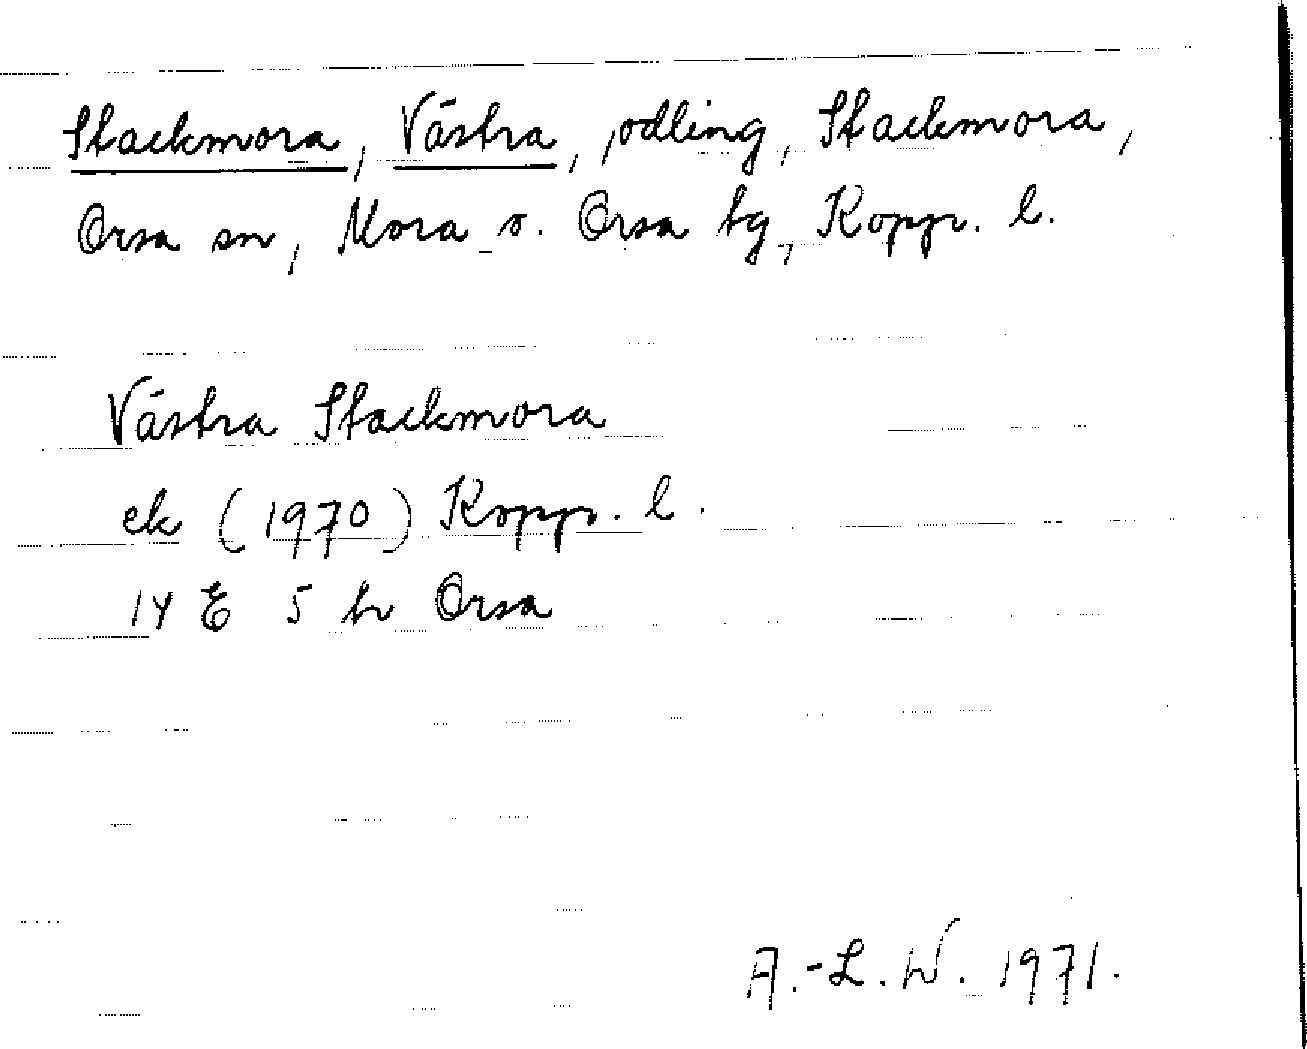 Stackmora, Västra, odling, Stackmora,
Orsa sn, Mora o. Orsa tg, Kopp. l.
Västra Stackmora
ek (1970) Kopp. l.
14 E 5 h Orsa
A.-L. W. 1971.